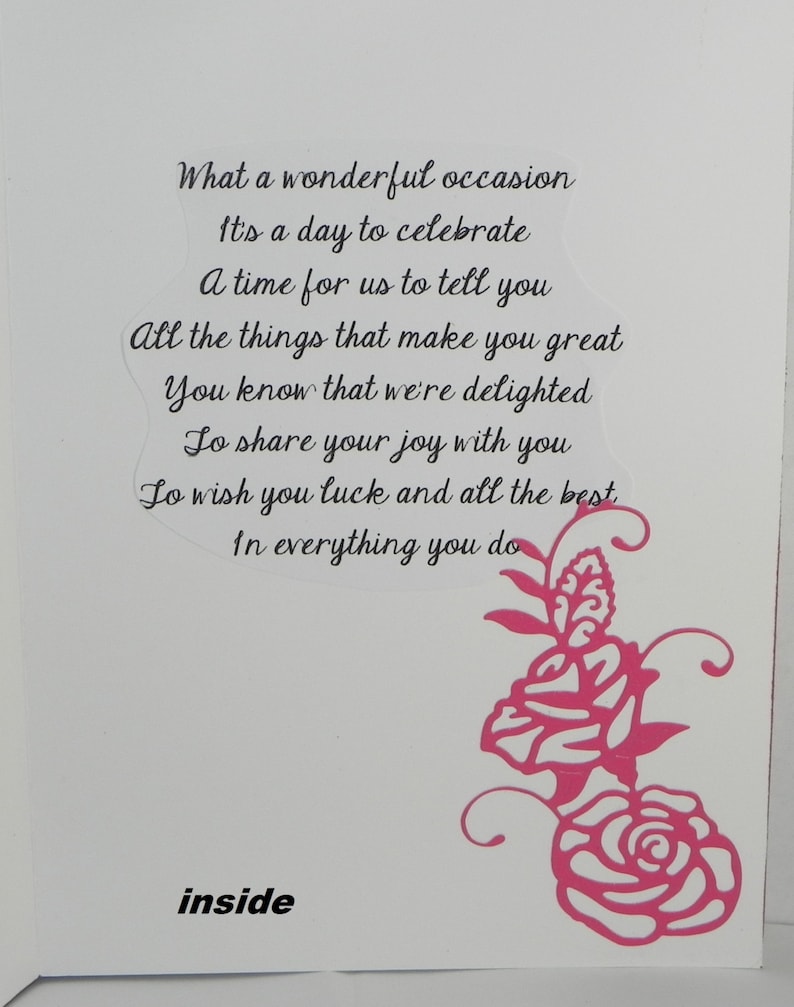 What a wonderful occasion
It's a day to celebrate
A time for us to tell you
All the things that make you great
You know that we're delighted
To share your joy with you
To wish you luck and all the best
In everything you do
inside